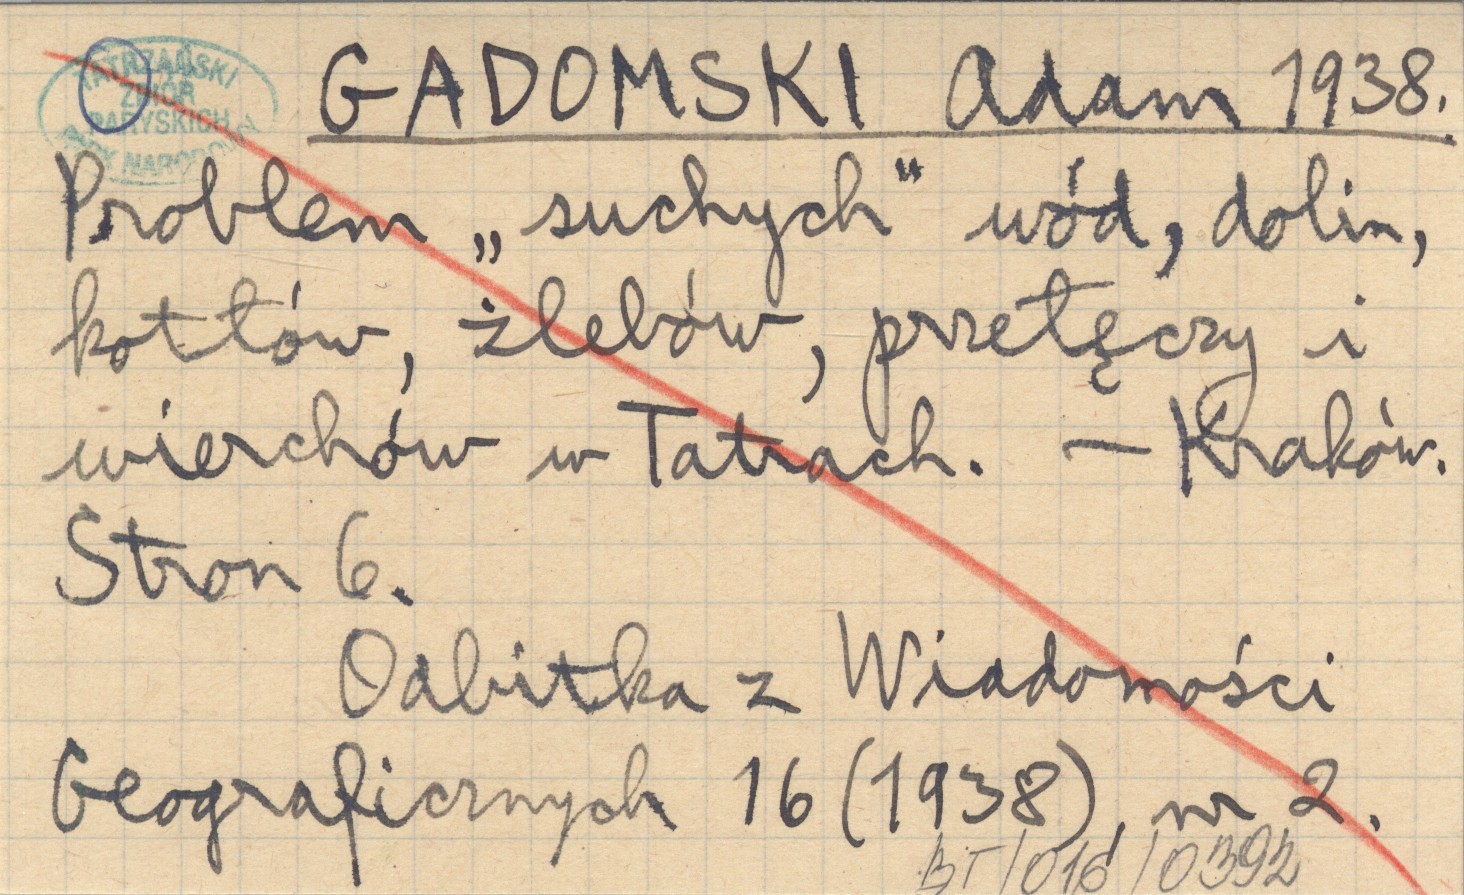 TATRZAŃSKI
ZBIÓR
PARYSKICH
PARK NARODOWY
GADOMSKI Adam 1938.
Problem „suchych" wód, dolin,
kotłów, żlebów, przełęczy i
wierchów w Tatrach. — Kraków.
Stron 6.
Odbitka z Wiadomości
Geograficznych 16 (1938), nr 2.
BT/016/0392